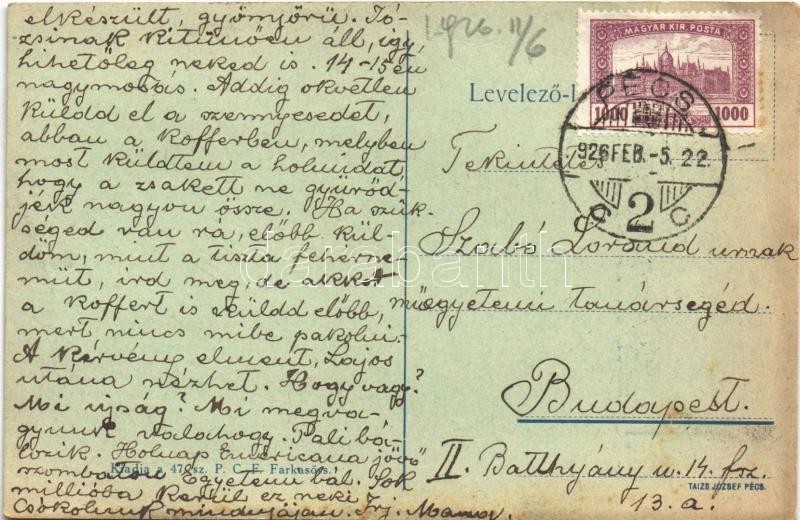 elkészült, gyönyörű. Jó-
zsinak kitünően áll, igy
hihetőleg neked is. 14-15én
nagymosás. Addig okvetlen
küldd el a szennyesedet,
abban a kofferben, melyben
most küldtem a holmidat,
hogy a zsakett ne gyürőd-
jék nagyon össze. Ha szük-
séged van rá, előbb kül-
döm, mint a tiszta fehérne-
müt, ird meg, de akkor
a koffert is küldd előbb,
mert nincs mibe pakolni.
A kérvény elment, Lajos
utána nézhet. Hogy vagy?
Mi ujság? Mi megva-
gyunk valahogy. Pali bá-
lozik. Holnap Emericana jövő
szombaton Egyetemi bál. Sok
millióba kerül ez neki
Csókolunk mindnyájan. Irj. Mama.
Kiadja a 47. sz. P. C. E. Farkasőrs.
1926. II/6
Levelező-
MAGYAR KIR. POSTA
1000 1000
PÉCS
926 FEB. -5. 22
2
Tekintetes
Szabó Loránd urnak
műegyetemi tanársegéd.
Budapest.
II. Batthyány u. 14. fsz.
13. a.
TAIZS JÓZSEF PÉCS
darabanth